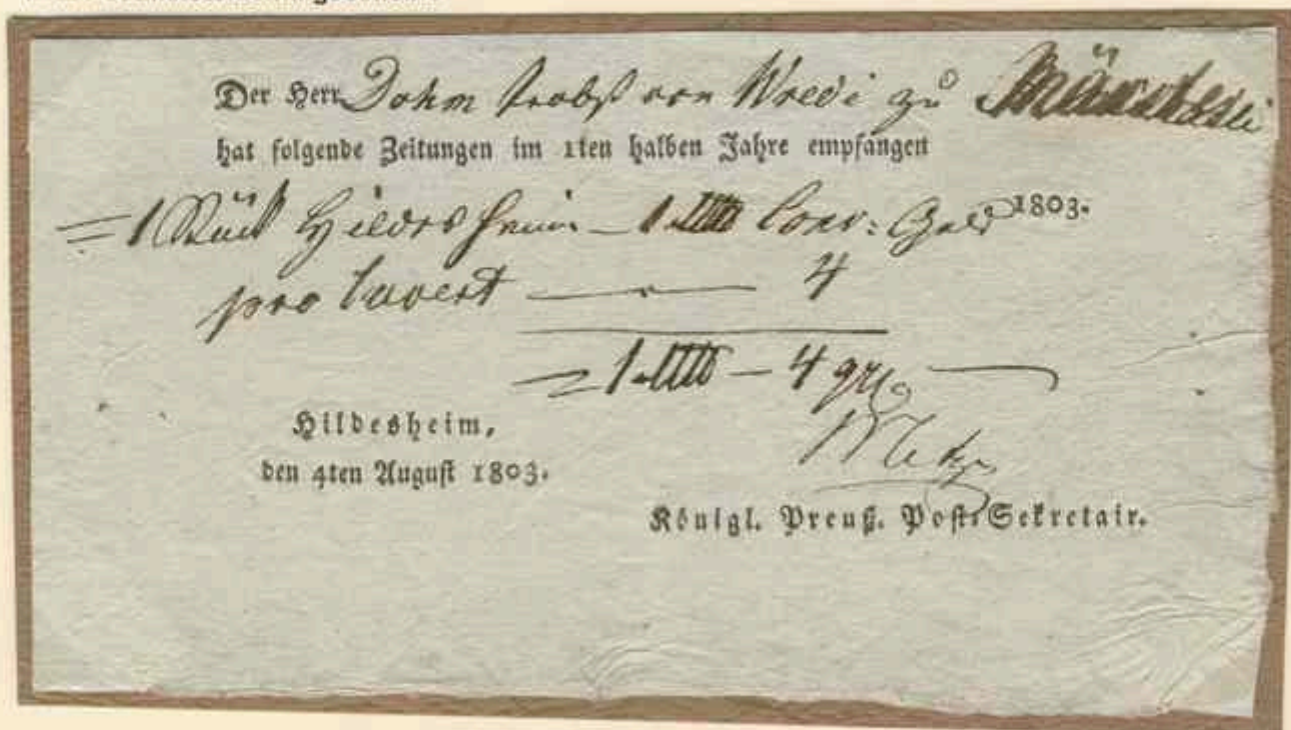 Der Herr Dohm Probst von Wrede zu
hat folgende Zeitungen im 1ten halben Jahre empfangen
1803.
1 Stück Hildesheim – 1 Conv: Geld
pro Couvert — 4
1 – 4 gr
Hildesheim,
den 4ten August 1803.
Königl. Preuß. Post-Sekretair.